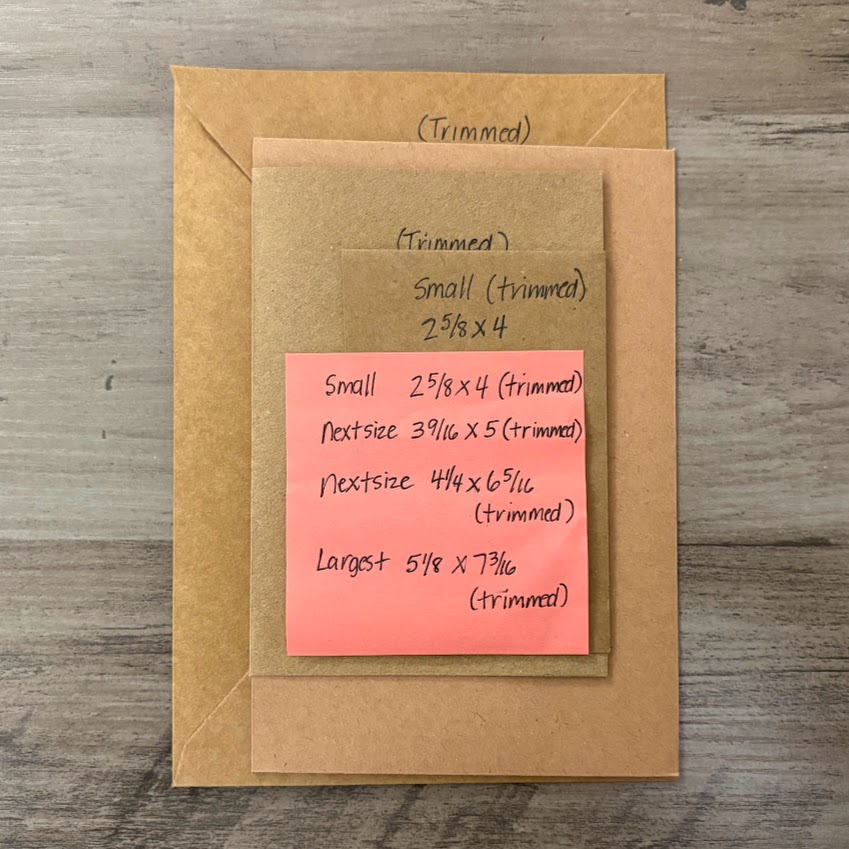 (Trimmed)
(Trimmed)
Small (trimmed)
2 5/8 X 4
Small 2 5/8 X 4 (trimmed)
nextsize 3 9/16 X 5 (trimmed)
nextsize 4 1/4 X 6 5/16
(trimmed)
Largest 5 1/8 X 7 3/16
(trimmed)